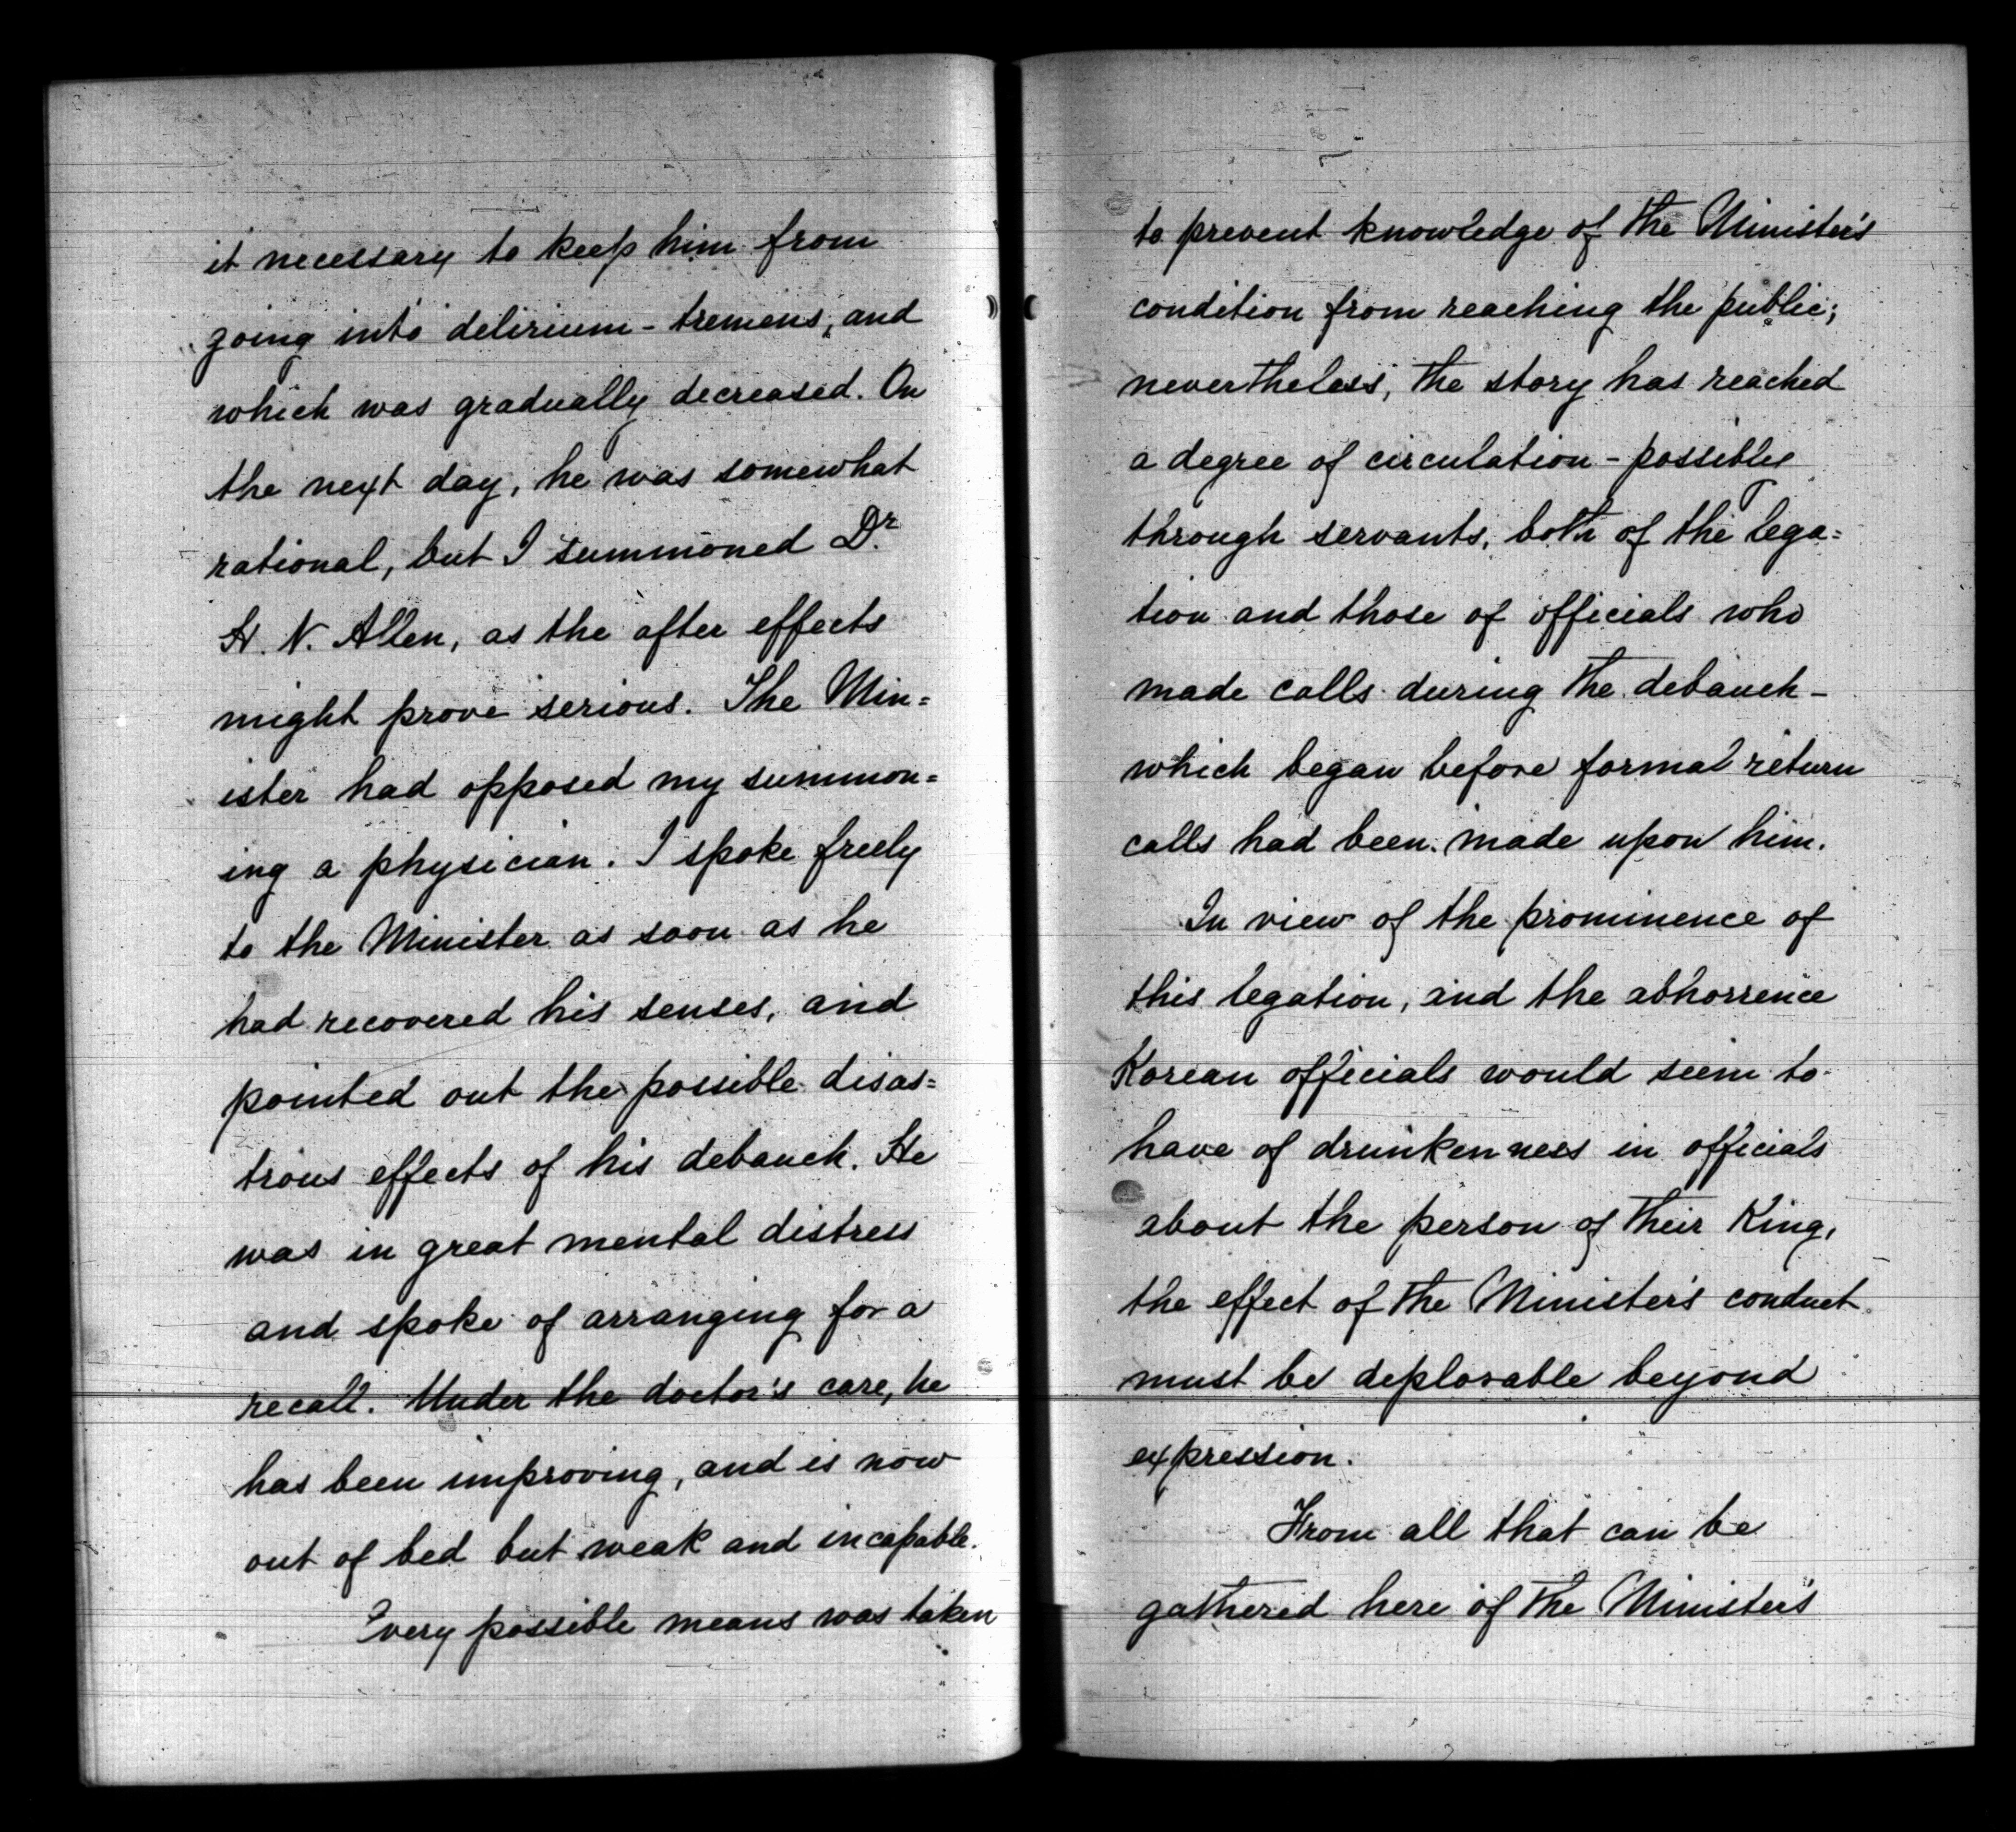 it necessary to keep him from
going into delirium-tremens, and
which was gradually decreased. On
the next day, he was somewhat
rational, but I summoned Dr.
H. N. Allen, as the after effects
might prove serious. The Min=
ister had opposed my summon=
ing a physician. I spoke freely
to the Minister as soon as he
had recovered his senses, and
pointed out the possible disas=
trous effects of his debauch. He
was in great mental distress
and spoke of arranging for a
recall. Under the doctor's care, he
has been improving, and is now
out of bed but weak and incapable.
Every possible means was taken
to prevent knowledge of the Minister's
condition from reaching the public;
nevertheless, the story has reached
a degree of circulation - possibly
through servants, both of the lega=
tion and those of officials who
made calls during the debauch -
which began before formal return
calls had been made upon him.
In view of the prominence of
this legation, and the abhorrence
Korean officials would seem to
have of drunkenness in officials
about the person of their King,
the effect of the Minister's conduct
must be deplorable beyond
expression.
From all that can be
gathered here of the Minister's